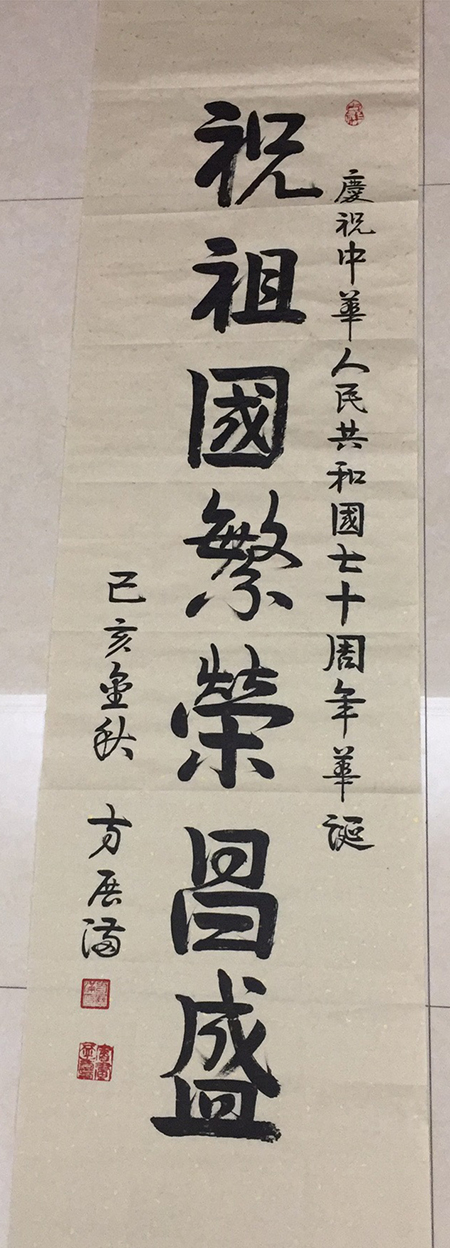 慶祝中華人民共和國七十周年華誕
祝祖國繁榮昌盛
己亥金秋 方展滿